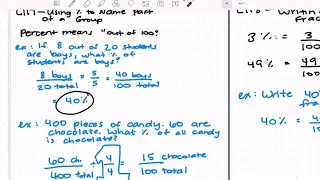 L117 - Using % to Name Part
of a Group
Percent means "out of 100"
ex: If 8 out of 20 students
are boys, what % of
students are boys?
8 boys / 20 total × 5/5 = 40 boys / 100 total
= 40%
ex: 400 pieces of candy. 60 are
chocolate. What % of all candy
is chocolate?
60 ch / 400 total ÷ 4/4 = 15 chocolate / 100 total
3% = 3
49% = 49
ex: Write 40%
40% = 4